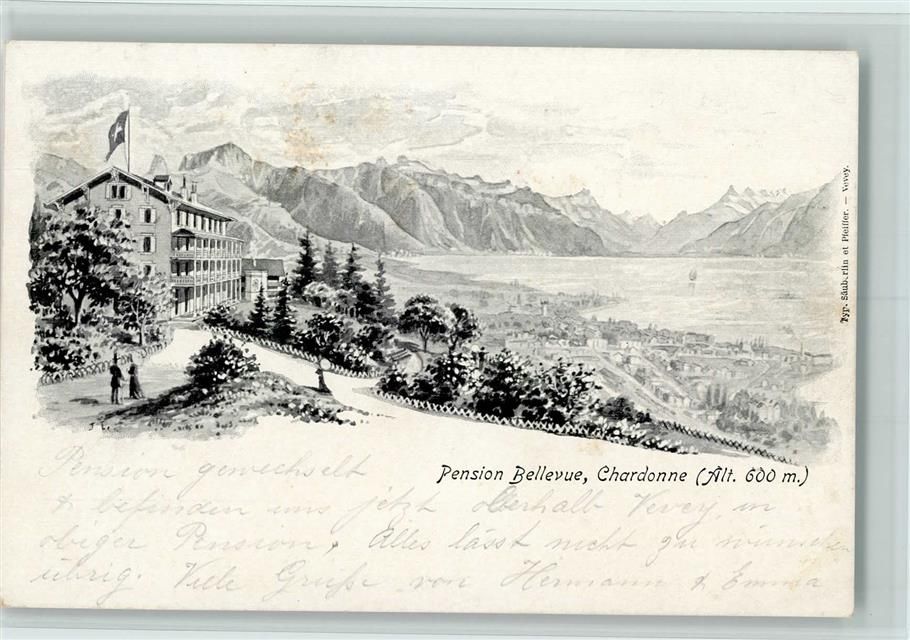 Typ. Säuberlin et Pfeiffer. — Vevey.
Pension Bellevue, Chardonne (Alt. 600 m.)
Pension gewechselt
& befinden uns jetzt oberhalb Vevey, in
obiger Pension, Alles lässt nicht zu wünschen
übrig. Viele Grüße von Hermann & Emma